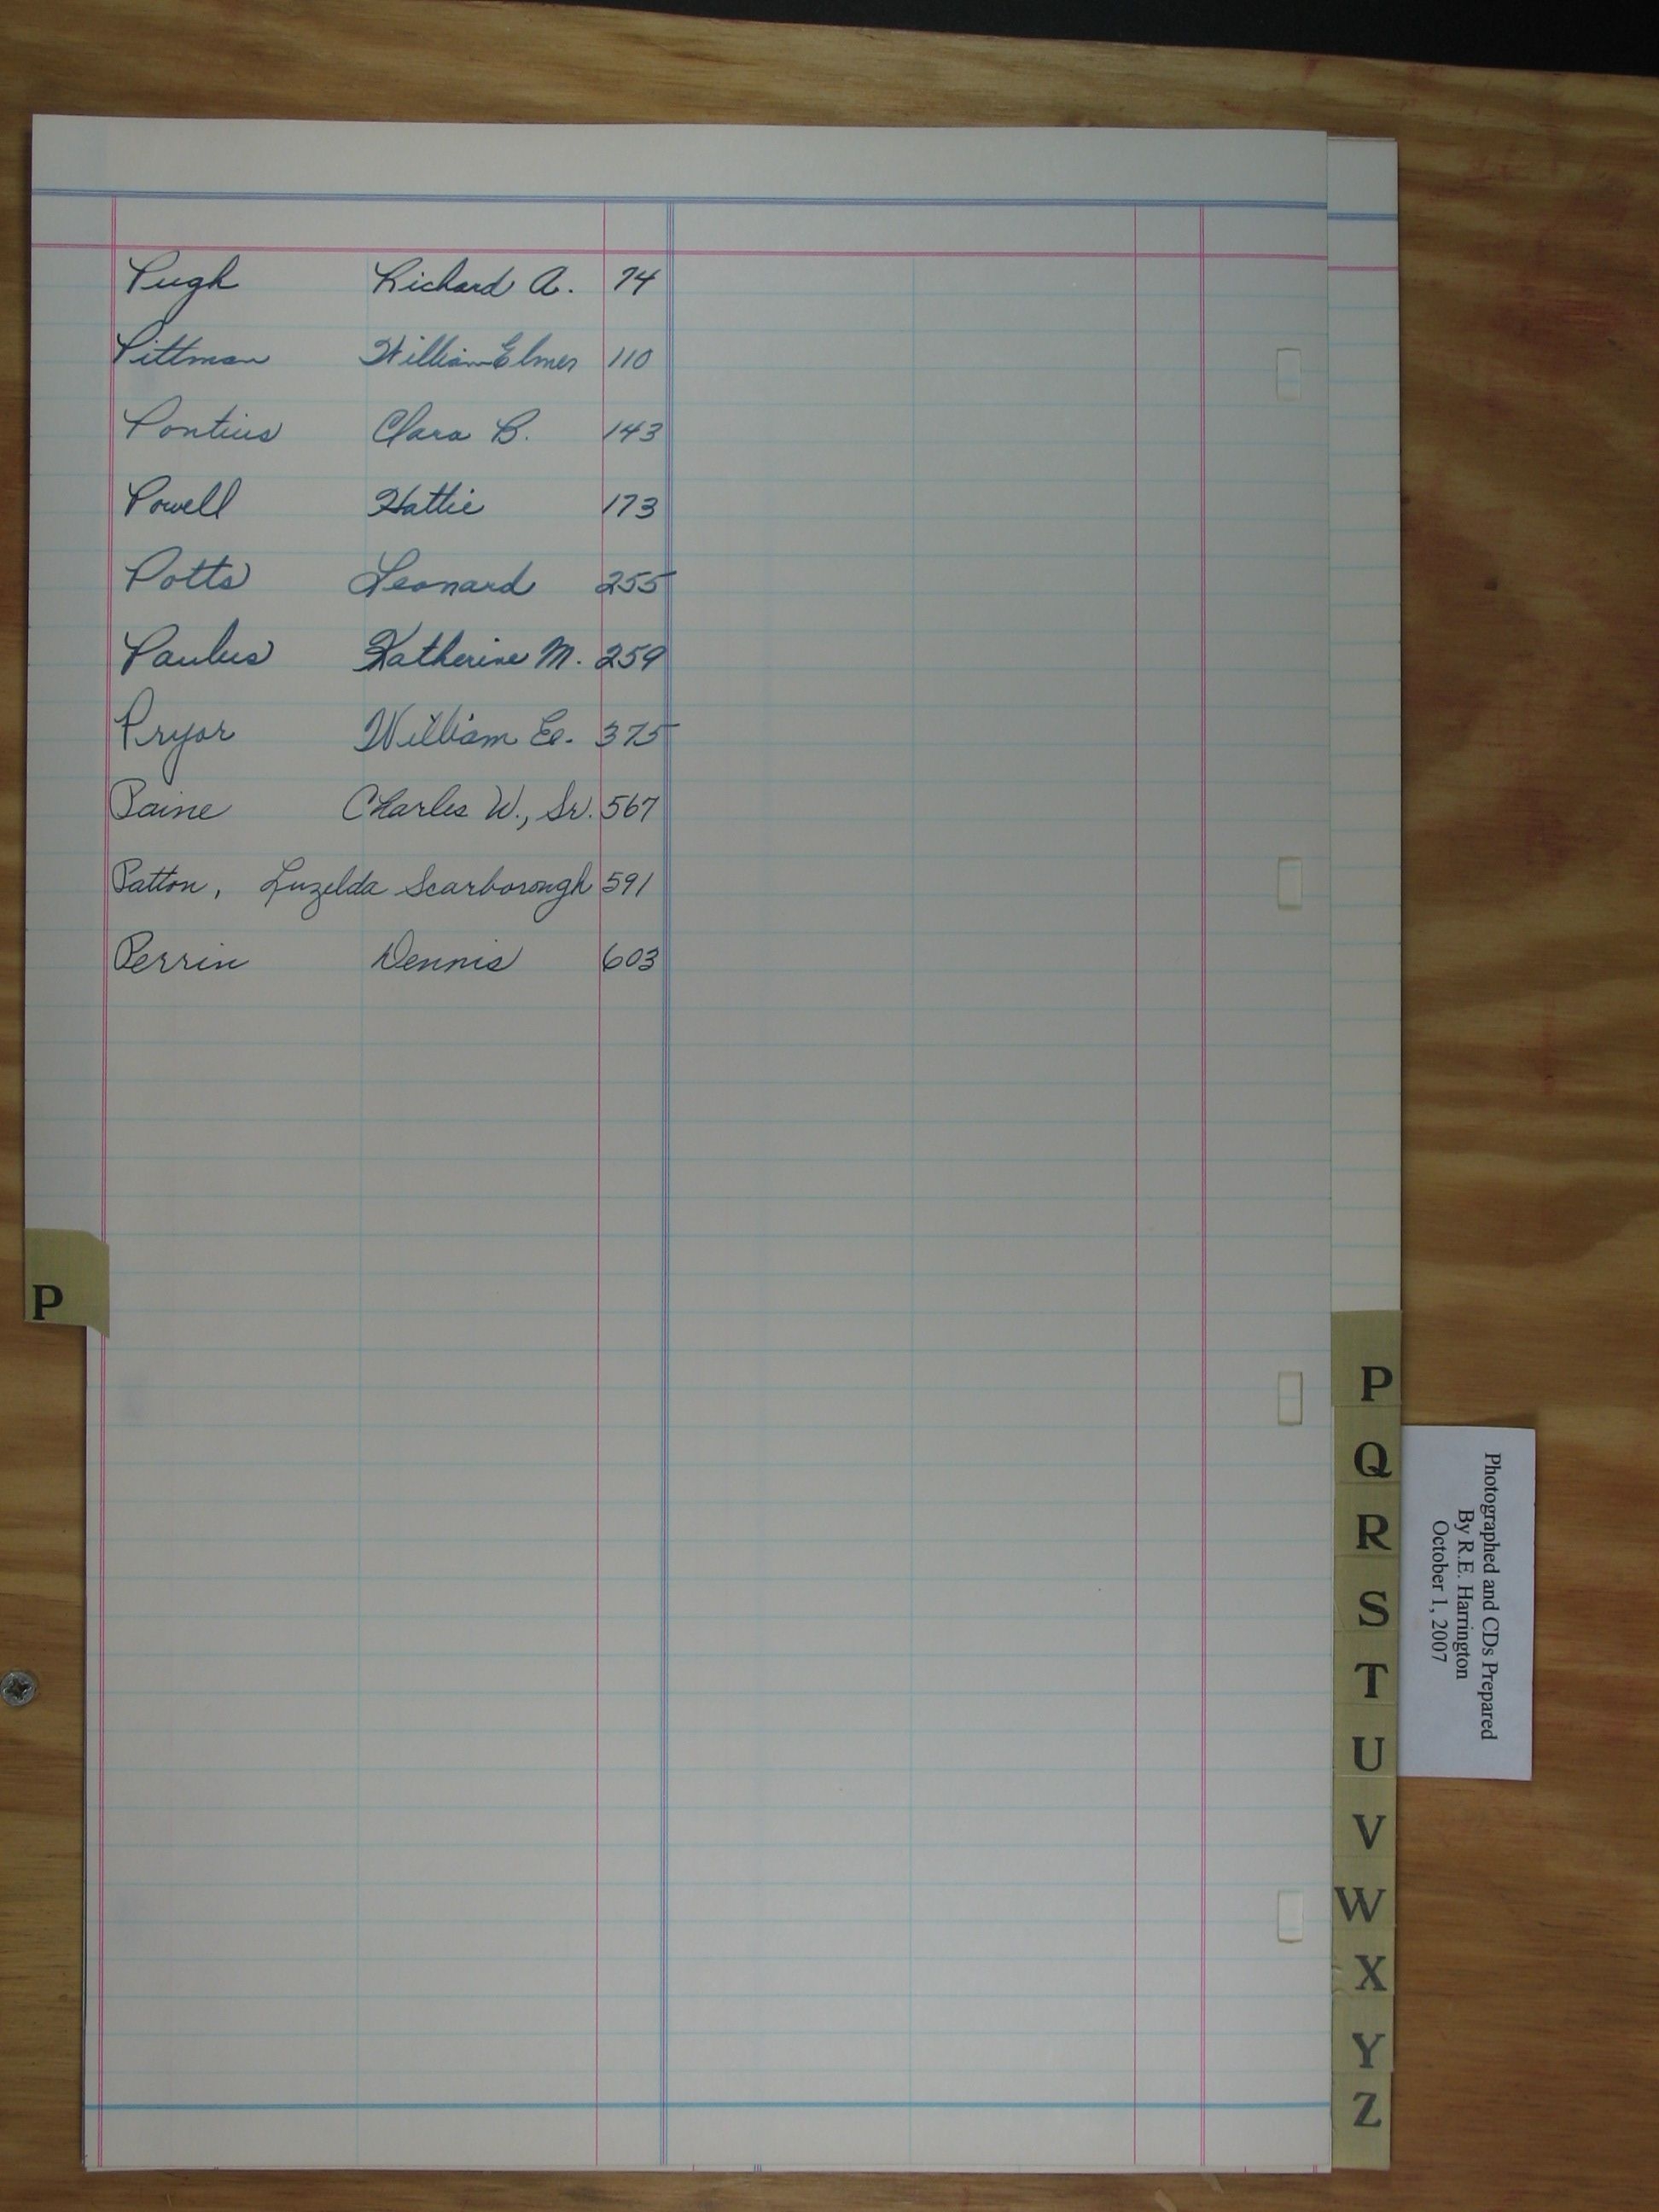 Pugh Richard A. 74
Pittman William Elmer 110
Pontius Clara B. 143
Powell Hattie 173
Potts Leonard 255
Paulus Katherine M. 259
Pryor William Ee. 375
Paine Charles W., Sr. 567
Patton, Luzelda Scarborough 591
Perrin Dennis 603
P
P
Q
R
S
T
U
V
W
X
Y
Z
Photographed and CDs Prepared
By R.E. Harrington
October 1, 2007